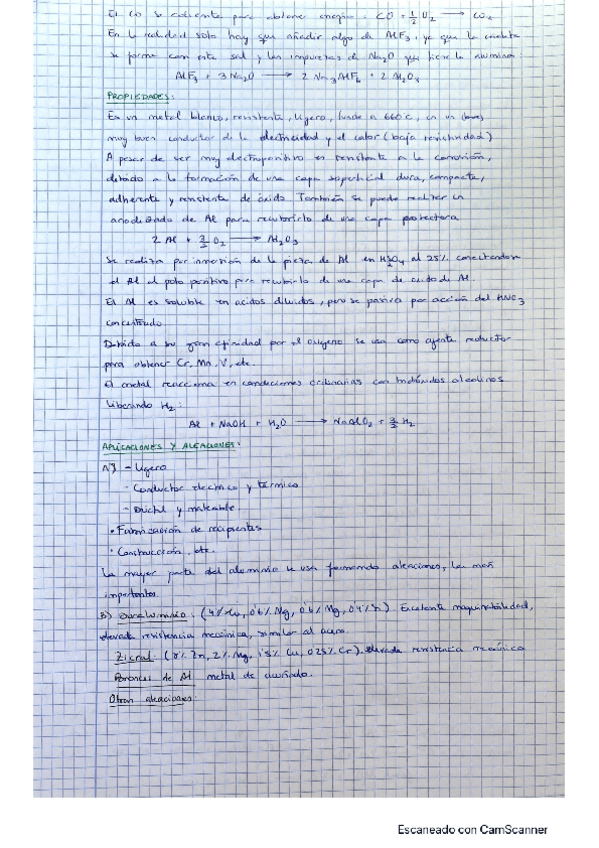 El CO se calienta para obtener energía: CO + ½ O₂ → CO₂
En la realidad solo hay que añadir algo de AlF₃, ya que la criolita
se forma con esta sal y las impurezas de Na₂O que tiene la alúmina:
AlF₃ + 3 Na₂O → 2 Na₃AlF₆ + 2 Al₂O₃
PROPIEDADES:
Es un metal blanco, resistente, ligero, funde a 660°C, es un
muy buen conductor de la electricidad y el calor (baja resistividad)
A pesar de ser muy electropositivo es resistente a la corrosión,
debido a la formación de una capa superficial dura, compacta,
adherente y resistente de óxido. También se puede realizar un
anodizado de Al para recubrirlo de una capa protectora
2 Al + 3/2 O₂ → Al₂O₃
Se realiza por inmersión de la pieza de Al en H₂SO₄ al 25% conectando
el Al al polo positivo para recubrirlo de una capa de óxido de Al.
El Al es soluble en ácidos diluidos, pero se pasiva por acción del HNO₃
concentrado.
Debido a su gran afinidad por el oxígeno se usa como agente reductor
para obtener Cr, Mn, V, etc.
El metal reacciona en condiciones ordinarias con hidróxidos alcalinos
liberando H₂:
Al + NaOH + H₂O → NaAlO₂ + 3/2 H₂
APLICACIONES Y ALEACIONES:
A) - Ligero
- Conductor eléctrico y térmico
- Dúctil y maleable.
• Fabricación de recipientes
• Construcción, etc.
La mayor parte del aluminio se usa formando aleaciones, las más
importantes:
B) Duraluminio: (4% Cu, 0,6% Mg, 0,6% Mg, 0,4% ) Excelente maquinabilidad,
elevada resistencia mecánica, similar al acero.
Zicral: (8% Zn, 2% Mg, 1,5% Cu, 0,25% Cr). Elevada resistencia mecánica
Bronces de Al metal de acuñado.
Otras aleaciones:
Escaneado con CamScanner